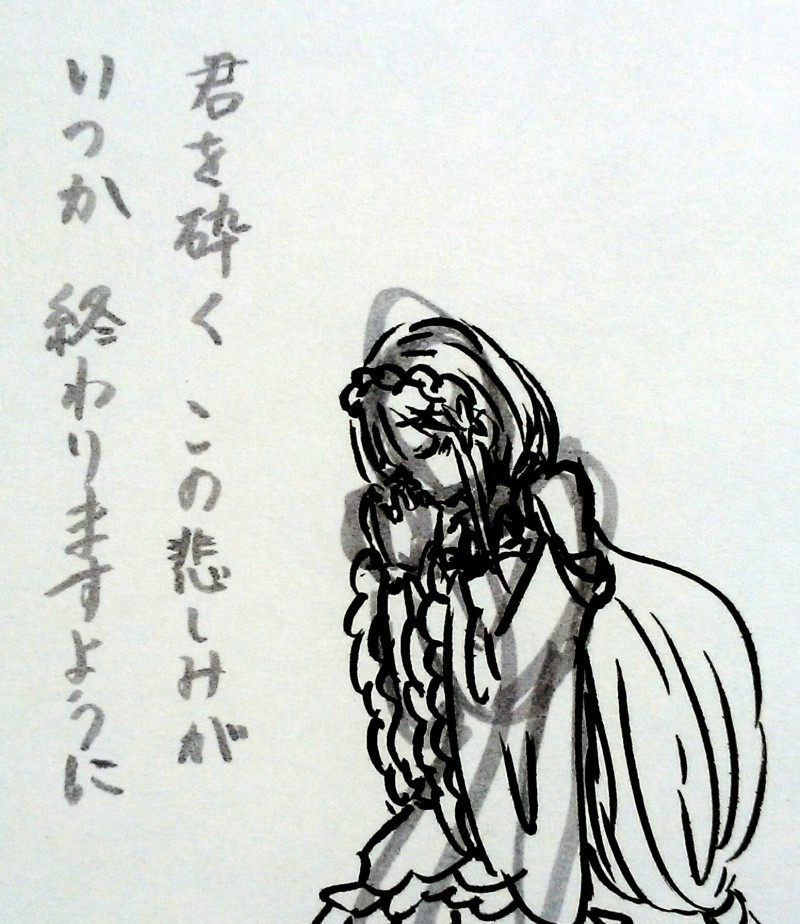 君を砕く この悲しみが
いつか 終わりますように